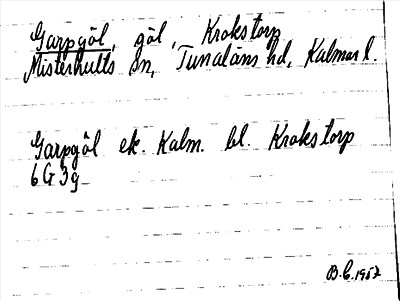 Garpgöl, göl, Krokstorp
Misterhults sn, Tunaläns hd, Kalmar l.
Garpgöl ek. Kalm. bl. Krokstorp
6G 3g
B.C. 1957